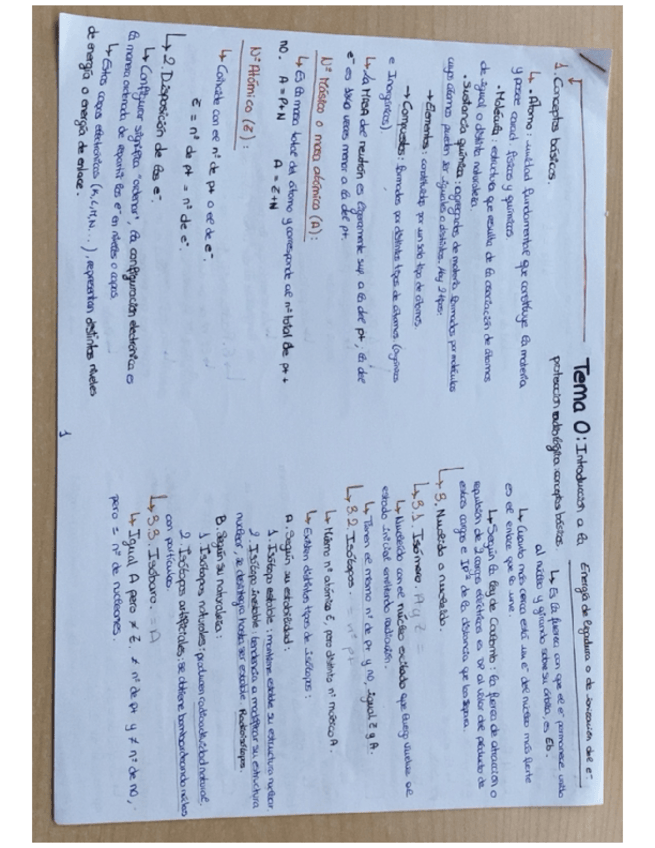 Tema 0: Introducción a la
protección radiológica. conceptos básicos.
1. Conceptos básicos.
↳ • Átomo: unidad fundamental que constituye la materia
y posee caract. físicas y químicas.
• Molécula: estructura que resulta de la asociación de átomos
de igual o distinta naturaleza.
• Sustancia química: agregados de materia formados por moléculas
cuyos átomos pueden ser iguales o distintos. Hay 2 tipos:
→ Elementos: constituidos por un solo tipo de átomos.
→ Compuestos: formados por distintos tipos de átomos. (orgánicos
e Inorgánicos)
↳ La MASA del neutrón es ligeramente sup a la del pt, la del
e⁻ es 1840 veces menor a la del pt.
Nº Másico o masa atómica (A):
↳ Es la masa total del átomo y corresponde al nº total de pt +
no. A = P+N A = Z+N
Nº Atómico (Z):
↳ Coincide con el nº de pt o el de e⁻.
Z = nº de pt = nº de e⁻.
↳ 2. Disposición de los e⁻.
↳ Configurar significa "ordenar", la configuración electrónica es
la manera ordenada de repartir los e⁻ en niveles o capas.
↳ Estas capas electrónicas (K, L, M, N...), representan distintos niveles
de energía o energía de enlace.
1
Energía de ligadura o de ionización del e⁻
↳ Es la fuerza con que el e⁻ permanece unido
al núcleo y girando sobre su órbita, es Eb.
↳ Cuanto más cerca está un e⁻ del núcleo más fuerte
es el enlace que lo une.
↳ Según la ley de Coulomb: la fuerza de atracción o
repulsión de 2 cargas eléctricas es DP al valor del producto de
estas cargas e IP² de la distancia que las separa.
↳ 3. Nucleido o nucleido.
↳ 3.1. Isómero. A y Z =
↳ Nucleido con el núcleo excitado que luego vuelve al
estado inicial emitiendo radiación.
↳ Tienen el mismo nº de pt y no, igual Z y A.
↳ 3.2. Isótopos. = nº pt
↳ Mismo nº atómico Z, pero distinto nº másico A.
↳ Existen distintos tipos de isótopos:
A. Según su estabilidad:
1. Isótopo estable: mantiene estable su estructura nuclear.
2. Isótopo inestable: tendencia a modificar su estructura
nuclear, se desintegra hasta ser estable. Radioisótopos.
B. Según su naturaleza:
1. Isótopos naturales: producen radioactividad natural.
2. Isótopos artificiales: se obtiene bombardeando núcleos
con partículas.
↳ 3.3. Isóbaro. = A
↳ Igual A pero ≠ Z. ≠ nº de pt y ≠ nº de no,
pero = nº de nucleones.